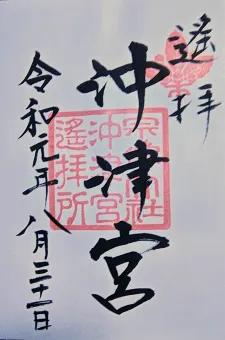 遙拝
沖津宮
宗像大社
沖津宮
遙拝所
令和元年八月三十一日